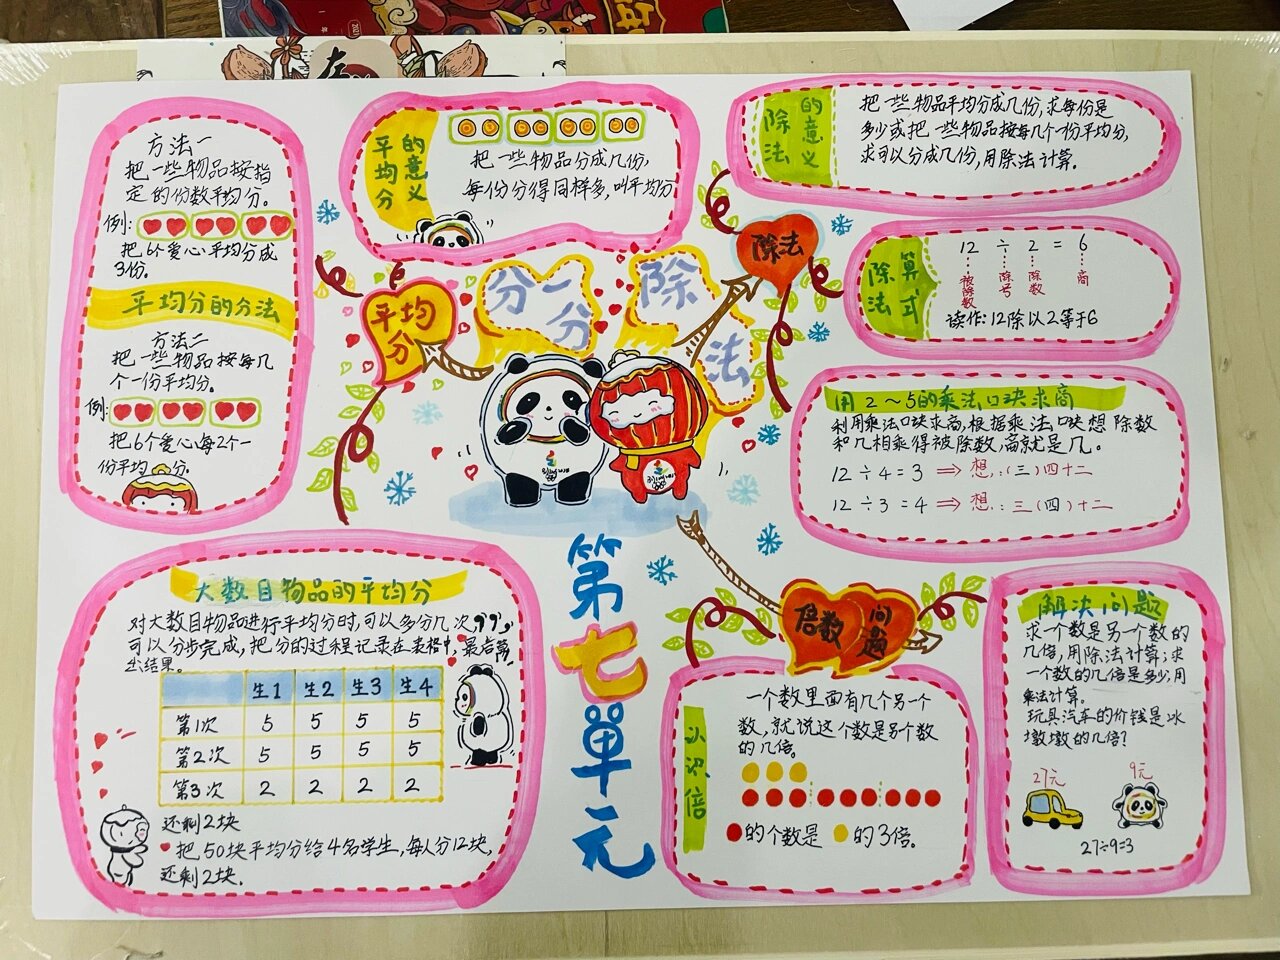 方法一
把一些物品按指
定的份数平均分。
例:
把6个爱心平均分成
3份。
平均分的分法
方法二
把一些物品按每几
个一份平均分。
例:
把6个爱心每2个一
份平均分。
平均分
的意义
把一些物品分成几份,
每份分得同样多,叫平均分
除法
的意义
把一些物品平均分成几份,求每份是
多少或把一些物品按每几个一份平均分,
求可以分成几份,用除法计算。
除法
算式
12 ÷ 2 = 6
被除数 除号 除数 商
读作:12除以2等于6
平均
分
分一分
除法
除法
用2~5的乘法口诀求商
利用乘法口诀求商,根据乘法口诀想除数
和几相乘得被除数,商就是几。
12÷4=3 ⇒ 想:(三)四十二
12÷3=4 ⇒ 想:三(四)十二
第七单元
大数目物品的平均分
对大数目物品进行平均分时,可以多分几次,
可以分步完成,把分的过程记录在表格中,最后算
出结果。
生1 生2 生3 生4
第1次 5 5 5 5
第2次 5 5 5 5
第3次 2 2 2 2
还剩2块
把50块平均分给4名学生,每人分12块,
还剩2块.
倍数
问题
认识倍
一个数里面有几个另一个
数,就说这个数是另个数
的几倍。
的个数是 的3倍。
解决问题
求一个数是另一个数的
几倍,用除法计算;求
一个数的几倍是多少,用
乘法计算。
玩具汽车的价钱是冰
墩墩的几倍?
27元 9元
27÷9=3